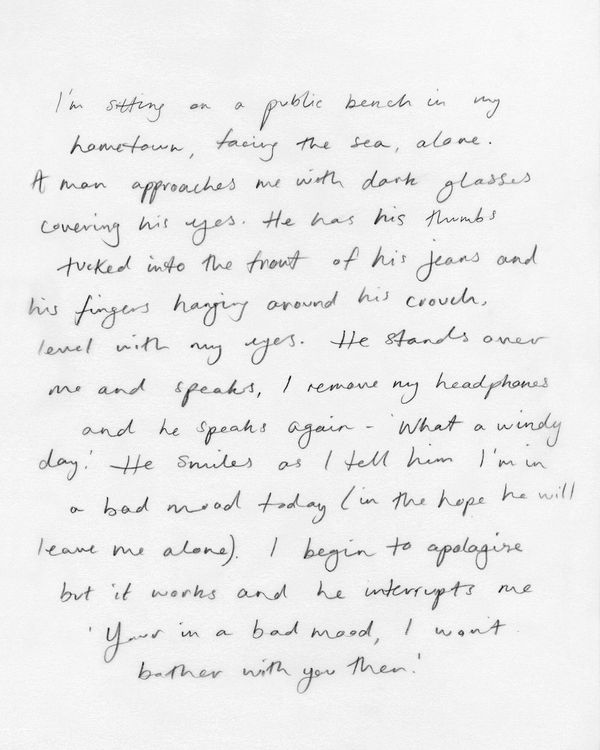 I'm sitting on a public bench in my
hometown, facing the sea, alone.
A man approaches me with dark glasses
covering his eyes. He has his thumbs
tucked into the front of his jeans and
his fingers hanging around his crouch,
level with my eyes. He stands over
me and speaks, I remove my headphones
and he speaks again - 'What a windy
day.' He smiles as I tell him I'm in
a bad mood today (in the hope he will
leave me alone). I begin to apologise
but it works and he interrupts me
'Your in a bad mood, I won't
bother with you then.'